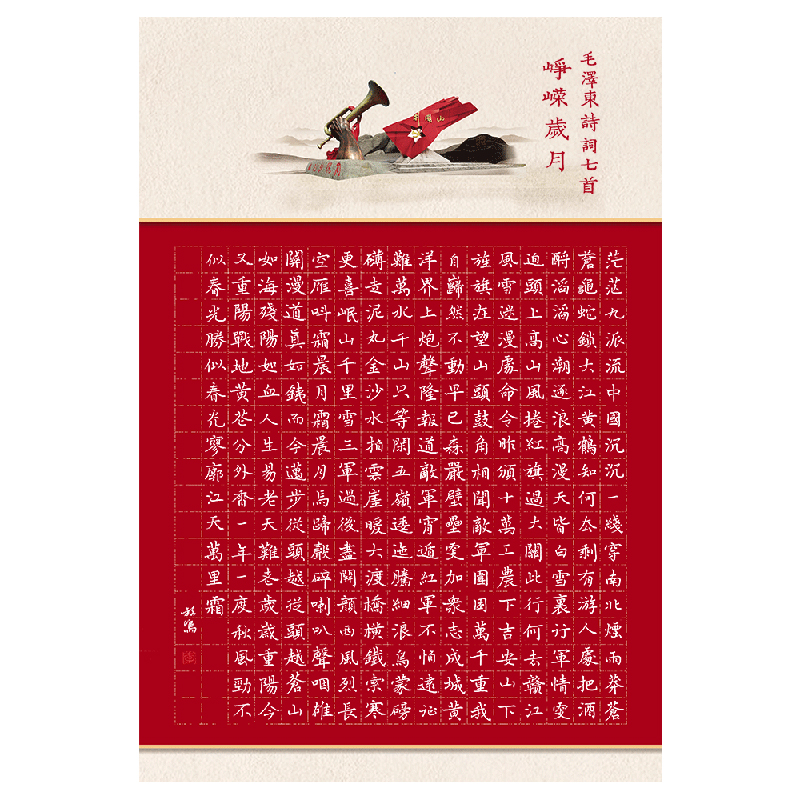 毛澤東詩詞七首
崢嶸歲月
茫茫九派流中國沉沉一綫穿南北煙雨莽蒼
蒼龜蛇鎖大江黃鶴知何去剩有游人處把酒
酹滔滔心潮逐浪高漫天皆白雪裏行軍情更
迫頭上高山風捲紅旗過大關此行何去贛江
風雪迷漫處命令昨頒十萬工農下吉安山下
旌旗在望山頭鼓角相聞敵軍圍困萬千重我
自巋然不動早已森嚴壁壘更加衆志成城黃
洋界上炮聲隆報道敵軍宵遁紅軍不怕遠征
難萬水千山只等閑五嶺逶迤騰細浪烏蒙磅
礴走泥丸金沙水拍雲崖暖大渡橋橫鐵索寒
更喜岷山千里雪三軍過後盡開顏西風烈長
空雁叫霜晨月霜晨月馬蹄聲碎喇叭聲咽雄
關漫道真如鐵而今邁步從頭越從頭越蒼山
如海殘陽如血人生易老天難老歲歲重陽今
又重陽戰地黃花分外香一年一度秋風勁不
似春光勝似春光寥廓江天萬里霜